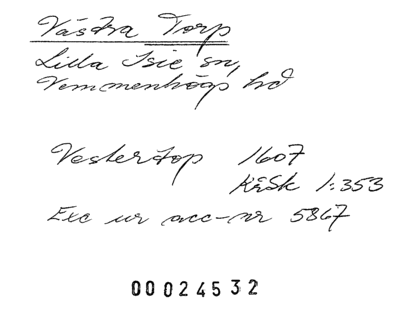 Västra Torp
Lilla Isie sn,
Vemmenhögs hd
Vesterstop 1607
KrSk 1:353
Exc ur acc-nr 5867
00024532